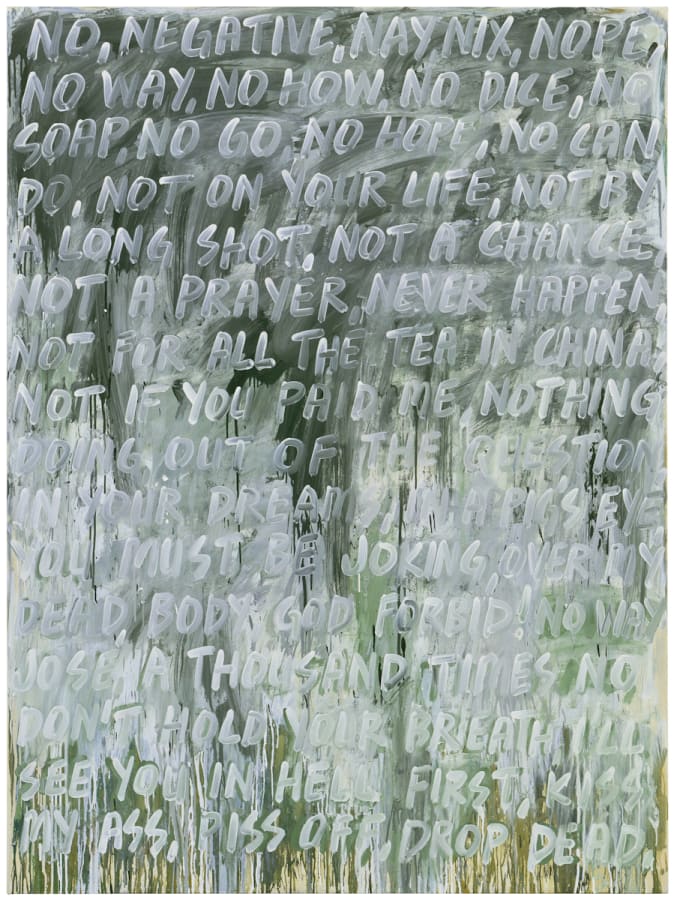 NO, NEGATIVE, NAY NIX, NOPE,
NO WAY, NO HOW, NO DICE, NO
SOAP, NO GO, NO HOPE, NO CAN
DO, NOT ON YOUR LIFE, NOT BY
A LONG SHOT, NOT A CHANCE,
NOT A PRAYER, NEVER HAPPEN,
NOT FOR ALL THE TEA IN CHINA,
NOT IF YOU PAID ME, NOTHING
DOING OUT OF THE QUESTION,
IN YOUR DREAMS, IN A PIG'S EYE,
YOU MUST BE JOKING, OVER MY
DEAD BODY, GOD FORBID, NO WAY
JOSE, A THOUSAND TIMES NO,
DON'T HOLD YOUR BREATH I'LL
SEE YOU IN HELL FIRST, KISS
MY ASS, PISS OFF, DROP DEAD.